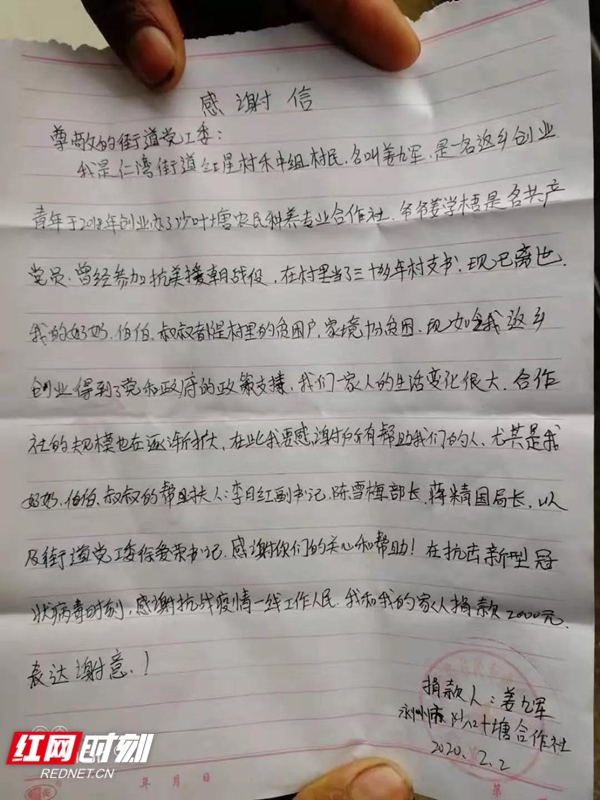 感谢信
尊敬的街道党工委：
我是仁湾街道红星村禾中组村民，名叫姜九军，是一名返乡创业
青年于2018年创业办了沙叶塘农民种养专业合作社，爷爷姜学梧是名共产
党员，曾经参加抗美援朝战役，在村里当了三十多年村支书，现已离世，
我的奶奶、伯伯、叔叔都是村里的贫困户，家境十分贫困，现如今我返乡
创业得到了党和政府的政策支持，我们一家人的生活变化很大，合作
社的规模也在逐渐扩大，在此我要感谢所有帮助我们的人，尤其是我
奶奶、伯伯、叔叔的帮扶人：李日红副书记、陈雪梅部长、蒋精国局长，以
及街道党工委徐爱荣书记，感谢你们的关心和帮助！在抗击新型冠
状病毒时刻，感谢抗战疫情一线工作人民，我和我的家人捐款2000元，
表达谢意！
捐款人：姜九军
永州市沙叶塘合作社
2020.2.2
年 月 日
第
红网时刻
REDNET.CN